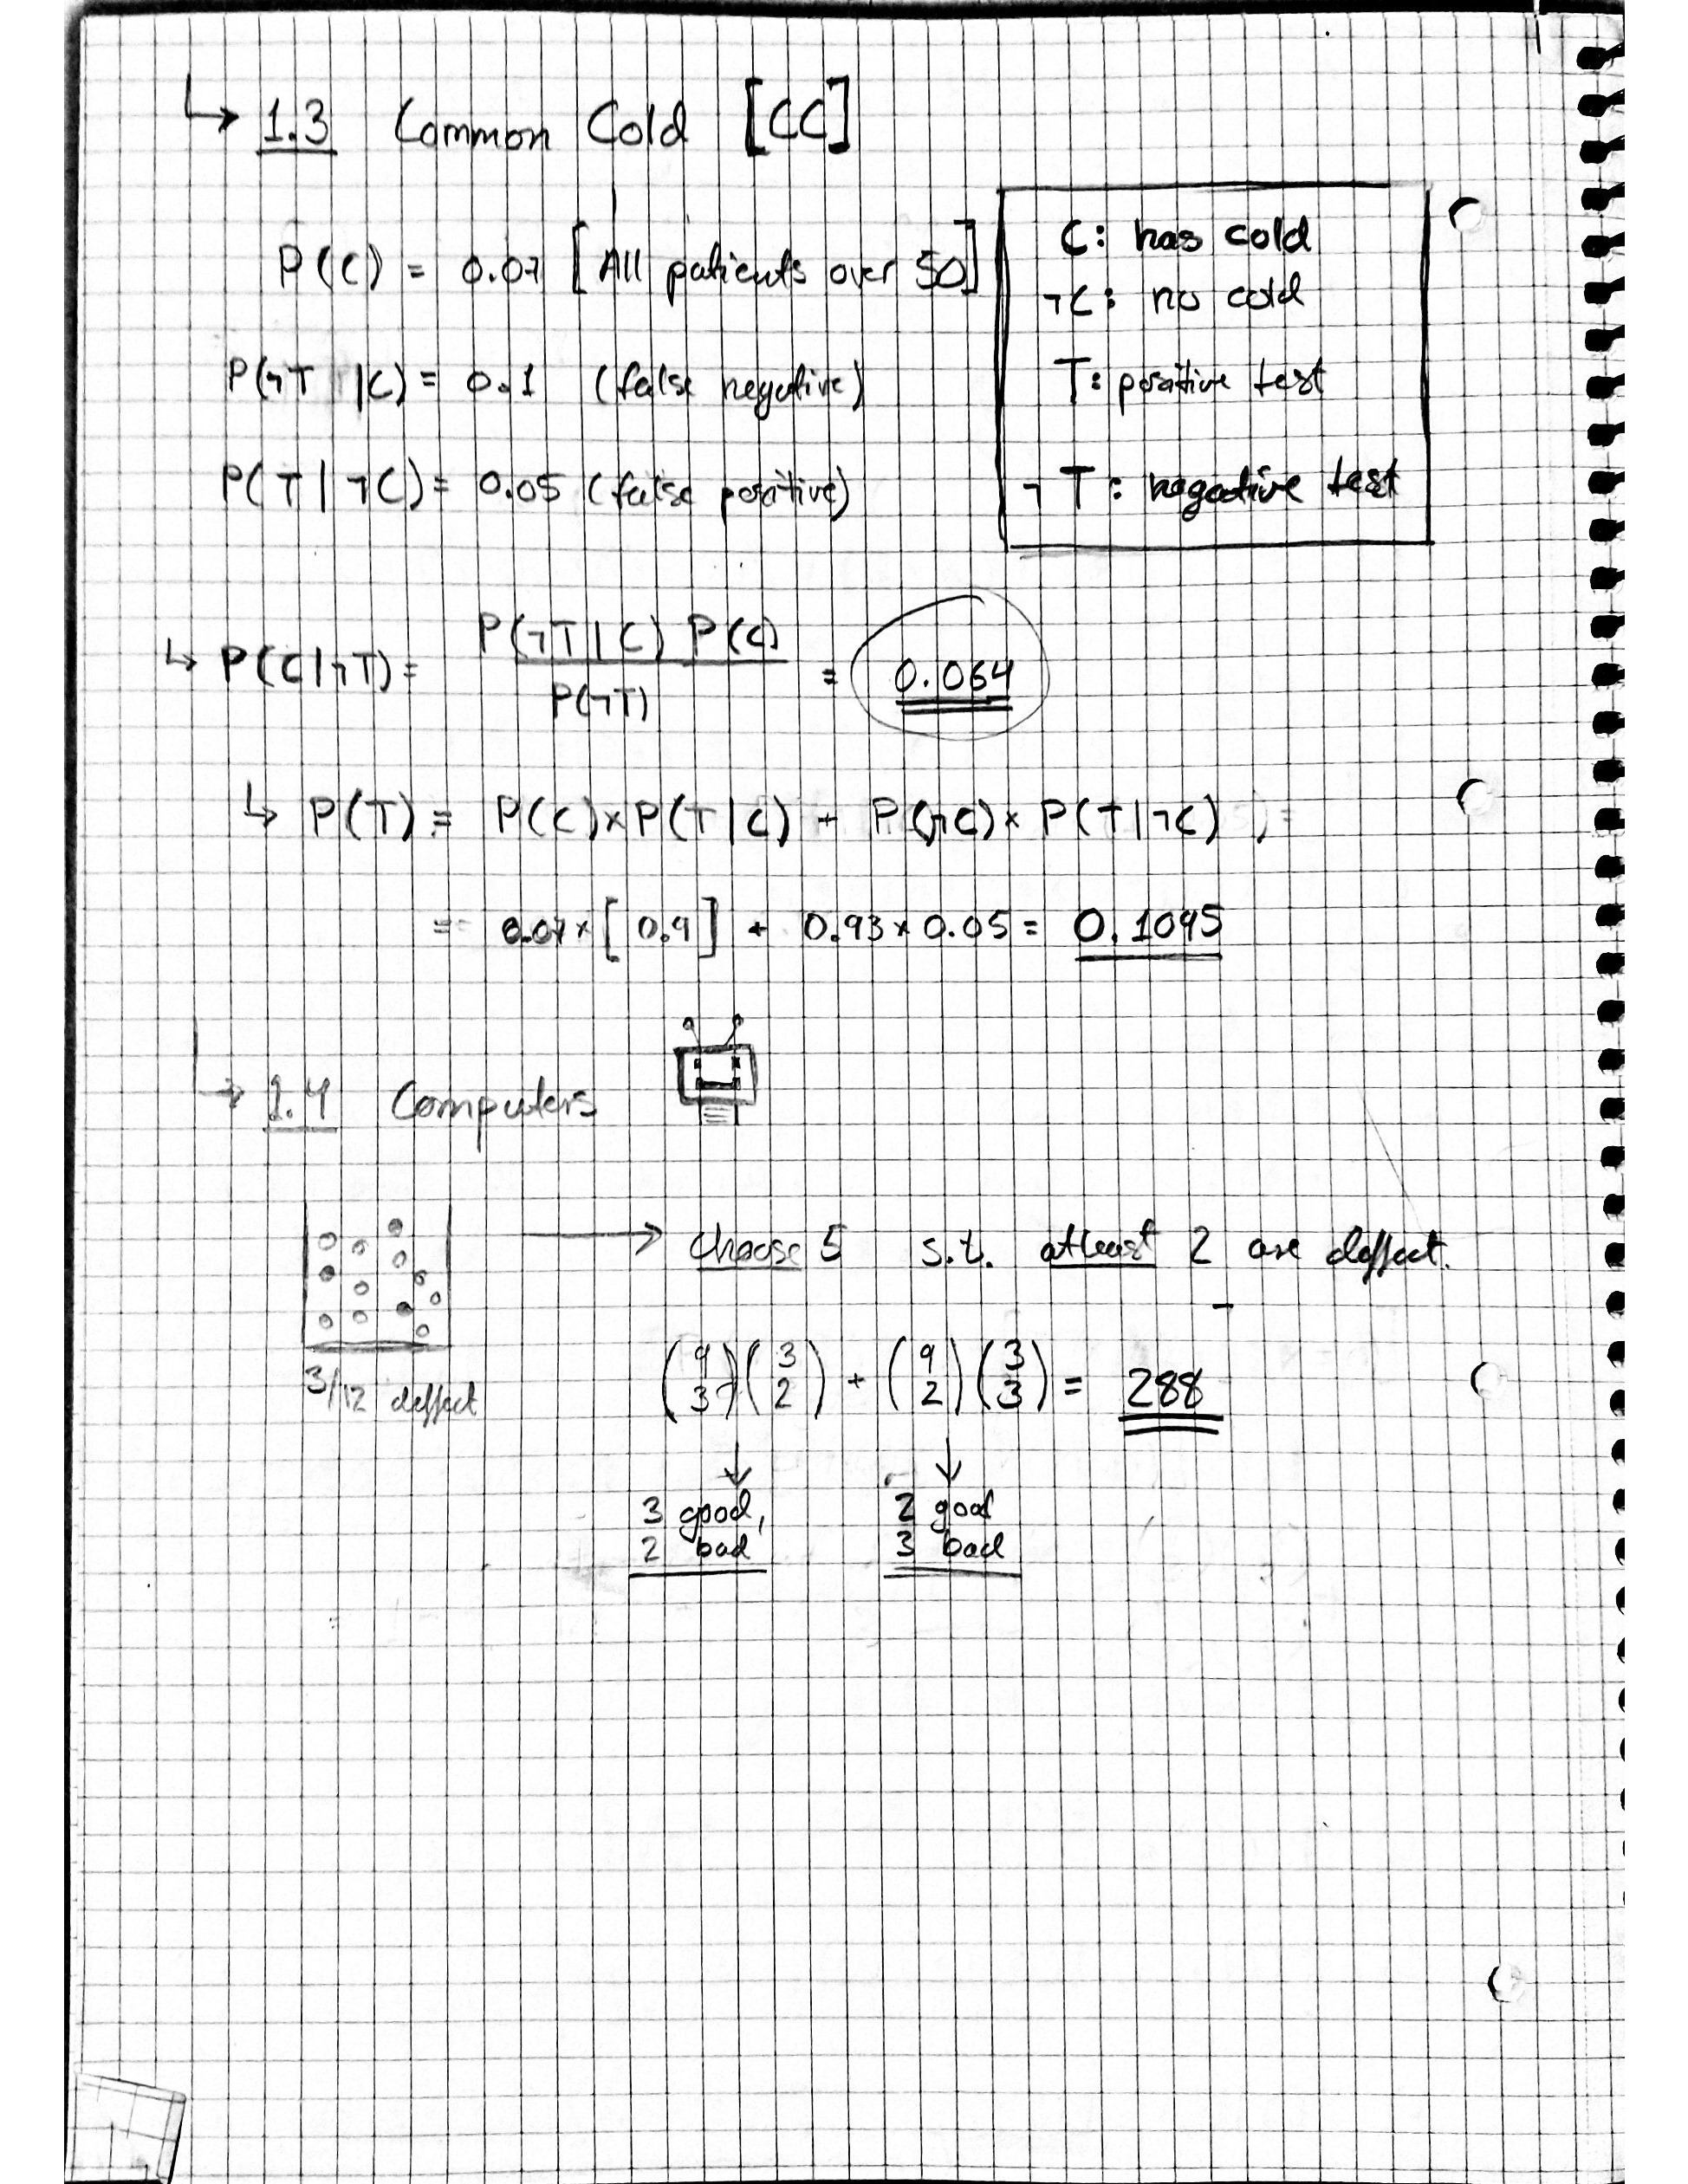 ↳ 1.3 Common Cold [CC]
P(C) = 0.07 [All patients over 50]
P(¬T | C) = 0.1 (false negative)
P(T | ¬C) = 0.05 (false positive)
C: has cold
¬C: no cold
T: positive test
¬T: negative test
↳ P(C|¬T) = P(¬T|C) P(C) / P(¬T) = 0.064
↳ P(T) = P(C) × P(T|C) + P(¬C) × P(T|¬C) =
= 0.07 × [0.9] + 0.93 × 0.05 = 0.1095
→ 1.4 Computers
3/12 deffect
→ choose 5 s.t. atleast 2 are deffect.
(9 3)(3 2) + (9 2)(3 3) = 288
3 good,
2 bad
2 good
3 bad